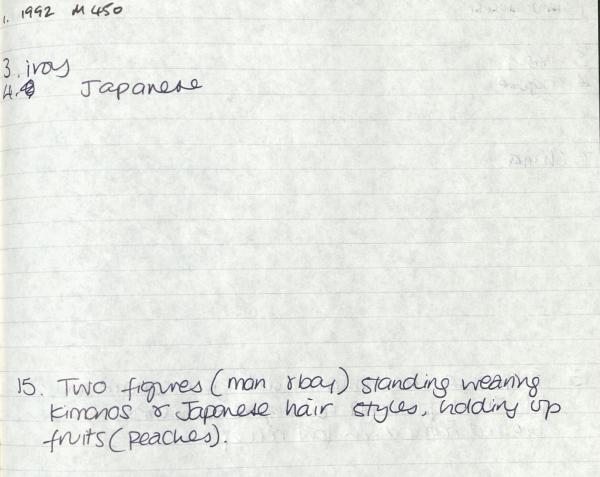 1. 1992 M 450
3. ivory
4. Japanese
15. Two figures (man & boy) standing wearing
Kimonos & Japanese hair styles, holding up
fruits (peaches).